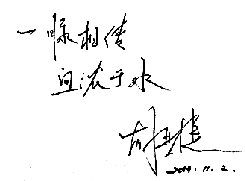 一脉相传
血浓于水
胡玉捷
2011.11.2.